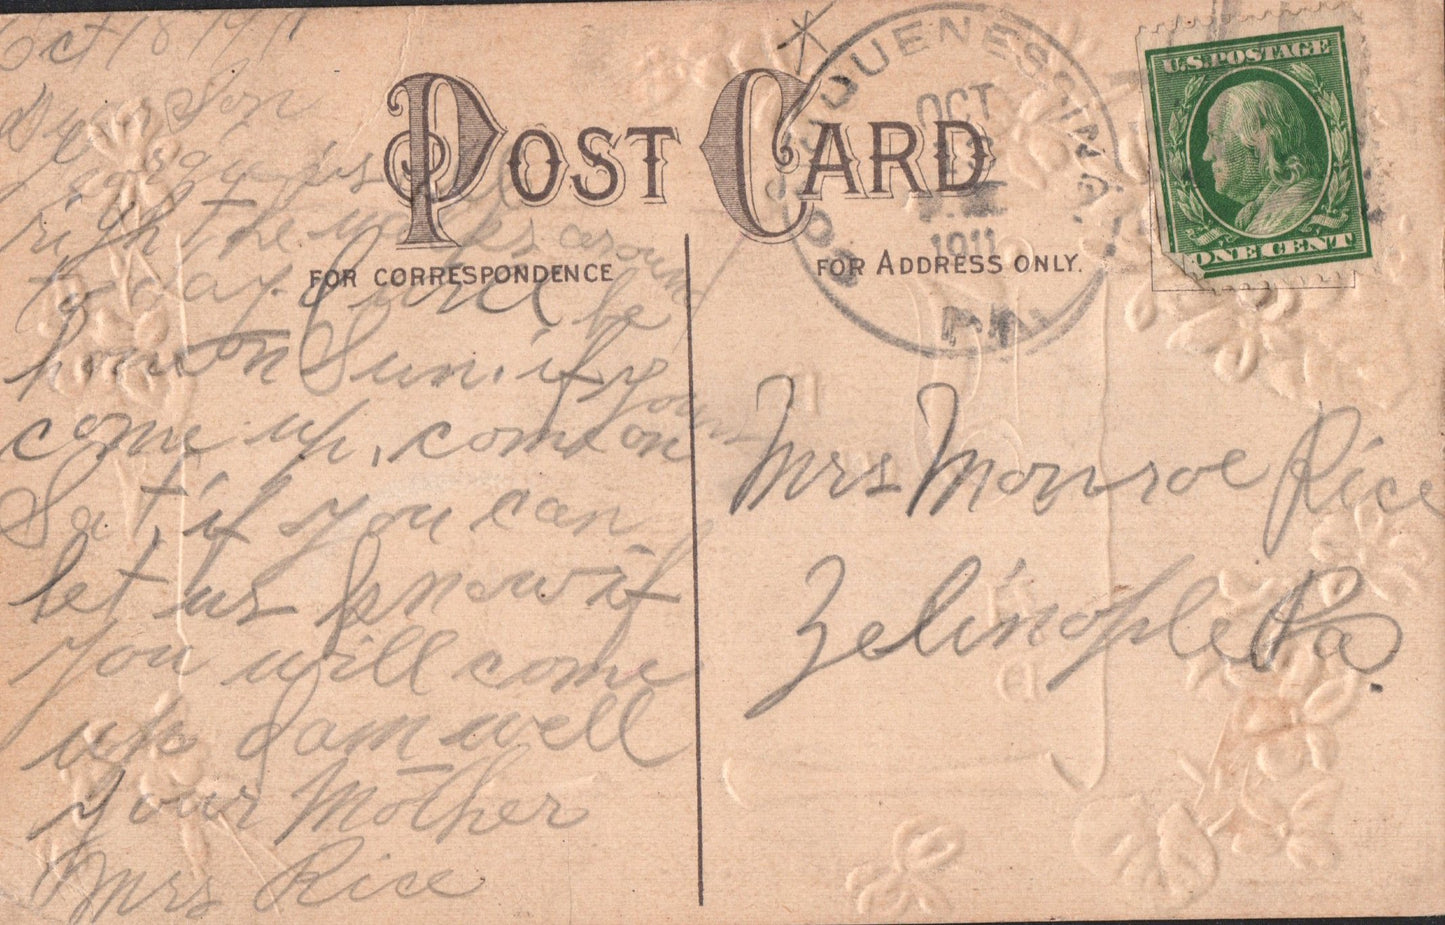 Oct 18 1911
Dear Son
right
to day. I will be
home on Sun. if you
come up, come on
Sat, if you can
let us know if
you will come
up I am well
your Mother
Mrs Rice
POST CARD
FOR CORRESPONDENCE
FOR ADDRESS ONLY.
DUQUENESSING
OCT
1911
PA.
U.S. POSTAGE
ONE CENT
Mrs Monroe Rice
Zelinople Pa.